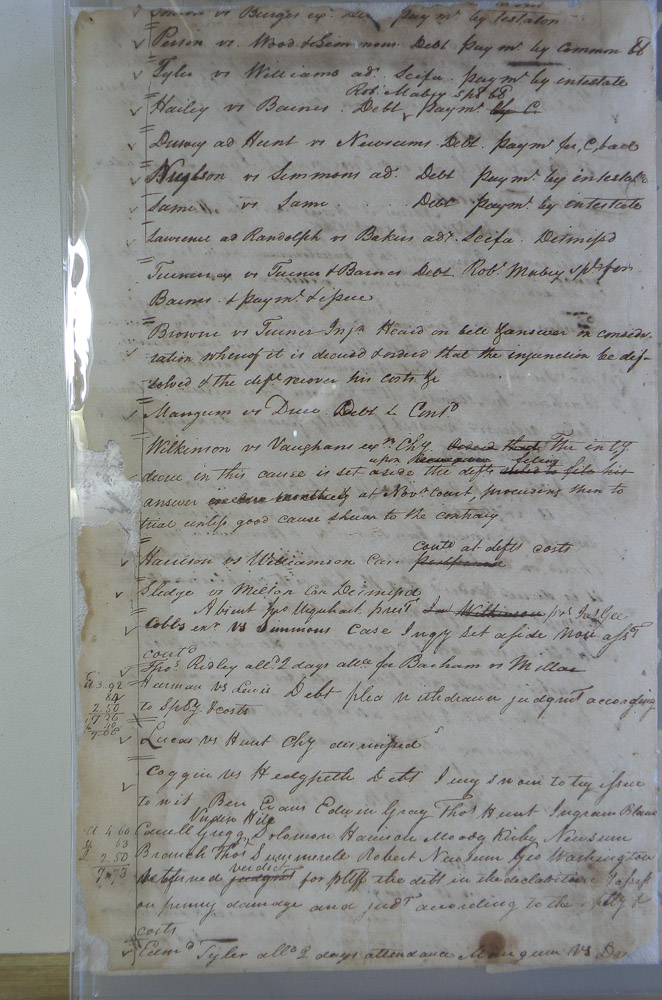 vs Burges exr Debt paymt by testator
Person vs. Wood & Simmons Debt paymt by common bl
Tyler vs Williams adr Scifa. paymt by intestate
Robt Mabry spl bl
Hailey vs Barnes. Debt, paymt by C.
ad Hunt vs Newsums Debt. paymt for, C, bail
vs Simmons adr. Debt paymt by intestate
Same vs Same Debt paymt by intestate
Lawrence ad Randolph vs Bakers adr. Scifa. Dismisd
Turner ex vs Turner & Barnes Debt Robt Mabry spl for
Barnes & paymt & issue
Browne vs Turner Injn Heard on bill & answer on conside-
ration whereof it is decreed & orderd that the injunction be dis-
solved & the deft recover his costs &c
Mangum vs Drew Debt Contd
Wilkinson vs Vaughans exr Chy. The inty
upon
decree in this cause is set aside the defts to file his
answer at Novr Court, procuring them to
trial unless good cause shewn to the contrary
contd at defts costs
Harrison vs Williamson Case
Sledge vs Melton Case Dismisd
Absent Jno Urquhart prest Jas Wilkinson prt Jas Gee
Cobbs exr vs Simmons Case Inqy set aside non asst
contd
Thos Ridley alld 2 days atta for Barham vs Millar
Harman vs Lewis Debt plea withdrawn judgmt according
to splty & costs
3.92
2.50
Lucas vs Hunt Chy dismised
Coggin vs Hedgpeth Debt Jury sworn to try issue
to wit Ben Evans Edwin Gray Thos Hunt Ingram Blunt
4.60
63
2.50
7.73
Gregg Solomon Harrison Moody Kirby Newsum
Branch Thos Summerele Robert Newsum Geo Washington
verdict
returned judgmt for pltff the debt in the declaration & assess
on penny damage and judt according to the splty &
costs
Edmd Tyler alld 2 days attendance Mangum vs